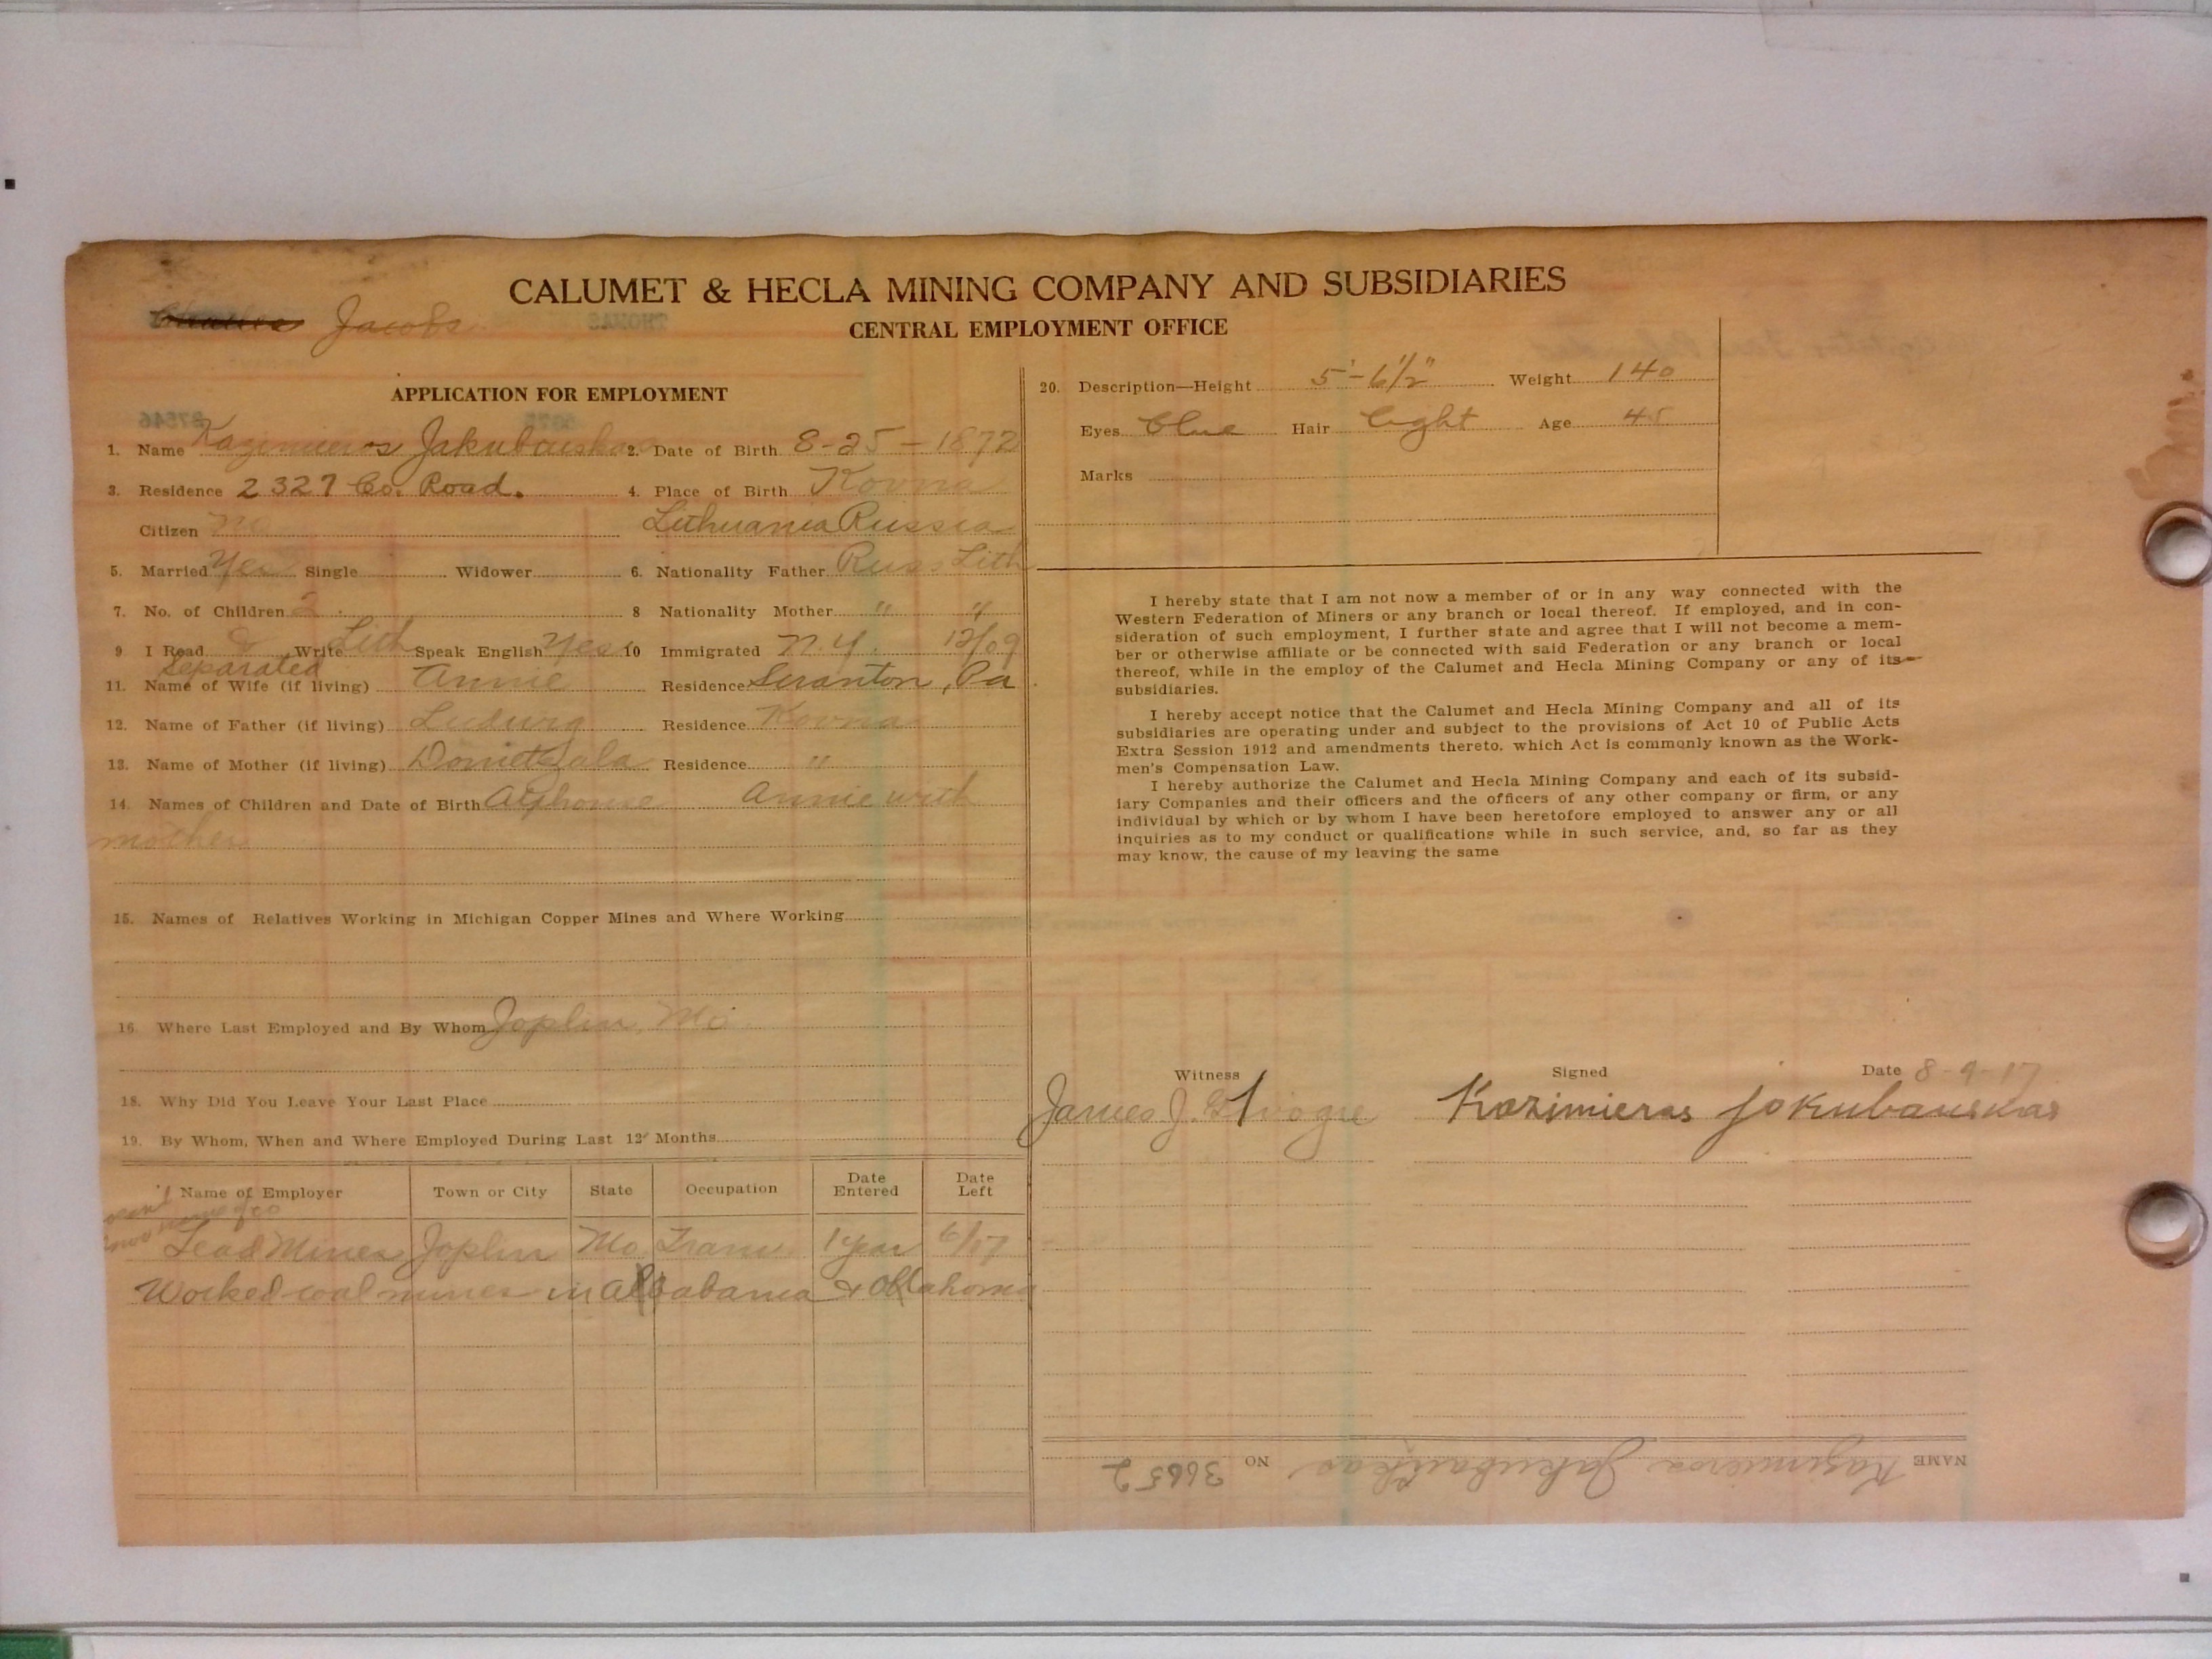 CALUMET & HECLA MINING COMPANY AND SUBSIDIARIES
Jacobs
CENTRAL EMPLOYMENT OFFICE
APPLICATION FOR EMPLOYMENT
1. Name Kazimieros Jakubauskas 2. Date of Birth 8-25-1872
3. Residence 2327 Co. Road. 4. Place of Birth Kovna
Citizen No Lithuania Russia
5. Married Yes Single Widower 6. Nationality Father Russ Lith
7. No. of Children 2 8 Nationality Mother " "
9 I Read & Write Lith Speak English Yes 10 Immigrated N.Y. 12/09
Separated
11. Name of Wife (if living) Annie Residence Scranton, Pa
12. Name of Father (if living) Ludwig Residence Kovna
13. Name of Mother (if living) Residence "
14. Names of Children and Date of Birth Alphonse Annie with
mother
15. Names of Relatives Working in Michigan Copper Mines and Where Working
16. Where Last Employed and By Whom Joplin, Mo
18. Why Did You Leave Your Last Place
19. By Whom, When and Where Employed During Last 12 Months
Name of Employer Town or City State Occupation Date Entered Date Left
name of co
Lead Mines Joplin Mo Tram 1 year 6/17
Worked coal mines in Alabama & Oklahoma
20. Description—Height 5'-6½" Weight 140
Eyes blue Hair light Age 45
Marks
I hereby state that I am not now a member of or in any way connected with the
Western Federation of Miners or any branch or local thereof. If employed, and in con-
sideration of such employment, I further state and agree that I will not become a mem-
ber or otherwise affiliate or be connected with said Federation or any branch or local
thereof, while in the employ of the Calumet and Hecla Mining Company or any of its
subsidiaries.
I hereby accept notice that the Calumet and Hecla Mining Company and all of its
subsidiaries are operating under and subject to the provisions of Act 10 of Public Acts
Extra Session 1912 and amendments thereto, which Act is commonly known as the Work-
men's Compensation Law.
I hereby authorize the Calumet and Hecla Mining Company and each of its subsid-
iary Companies and their officers and the officers of any other company or firm, or any
individual by which or by whom I have been heretofore employed to answer any or all
inquiries as to my conduct or qualifications while in such service, and, so far as they
may know, the cause of my leaving the same
Witness Signed Date 8-9-17
James J. Kazimieras jokubauskas
NAME Kazimieros Jakubauskas NO 36652